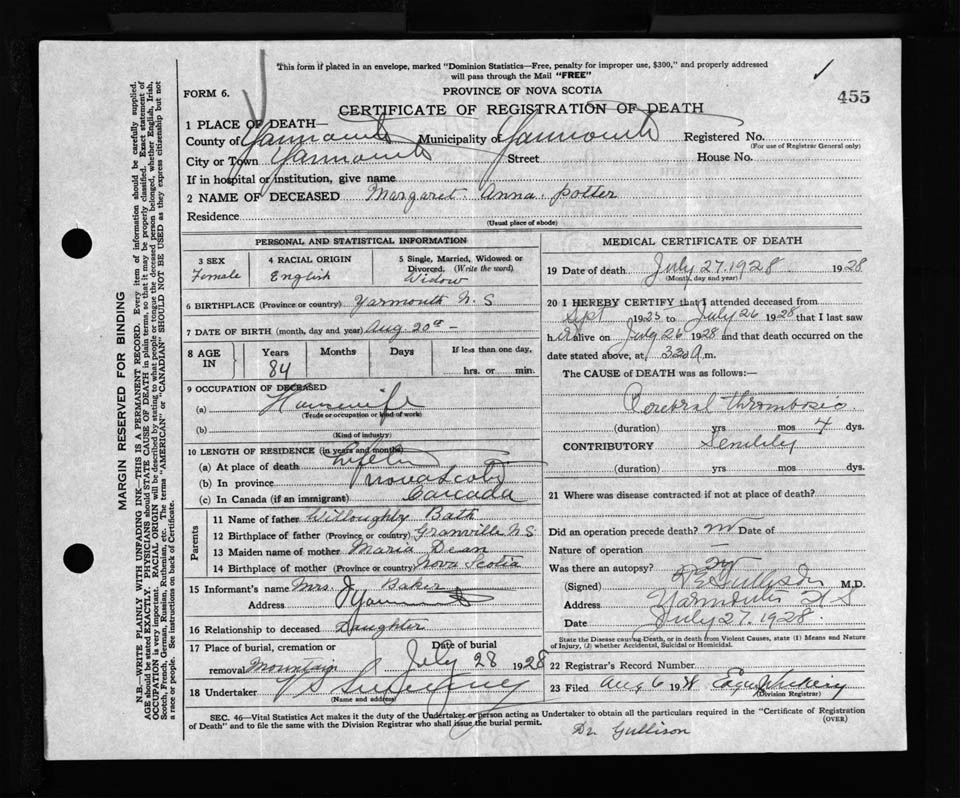 This form if placed in an envelope, marked "Dominion Statistics—Free, penalty for improper use, $300," and properly addressed
will pass through the Mail "FREE"
FORM 6.
PROVINCE OF NOVA SCOTIA
455
CERTIFICATE OF REGISTRATION OF DEATH
1 PLACE OF DEATH—
County of Yarmouth Municipality of Yarmouth Registered No.
(For use of Registrar General only)
City or Town Yarmouth Street House No.
If in hospital or institution, give name
2 NAME OF DECEASED Margaret Anna Potter
Residence
(Usual place of abode)
PERSONAL AND STATISTICAL INFORMATION
3 SEX Female
4 RACIAL ORIGIN English
5 Single, Married, Widowed or
Divorced. (Write the word)
Widow
6 BIRTHPLACE (Province or country) Yarmouth N. S
7 DATE OF BIRTH (month, day and year) Aug 20th –
8 AGE IN
Years Months Days If less than one day,
84 hrs. or min.
9 OCCUPATION OF DECEASED
(a) Housewife
(Trade or occupation or kind of work)
(b)
(Kind of industry)
10 LENGTH OF RESIDENCE (in years and months)
(a) At place of death
(b) In province Nova Scotia
(c) In Canada (if an immigrant) Canada
Parents
11 Name of father Willoughby Bath
12 Birthplace of father (Province or country) Granville N S
13 Maiden name of mother Maria Dean
14 Birthplace of mother (Province or country) Nova Scotia
15 Informant's name Mrs. J Baker
Address Yarmouth
16 Relationship to deceased Daughter
17 Place of burial, cremation or Date of burial
removal Mountain July 28 1928
18 Undertaker
(Name and address)
MEDICAL CERTIFICATE OF DEATH
19 Date of death July 27. 1928 1928
(Month, day and year)
20 I HEREBY CERTIFY that I attended deceased from
Sept 1925 to July 26 1928 that I last saw
h er alive on July 26 1928 and that death occurred on the
date stated above, at 3 20 a m.
The CAUSE of DEATH was as follows:—
Cerebral Thrombosis
(duration) yrs mos 4 dys.
CONTRIBUTORY Senility
(duration) yrs mos dys.
21 Where was disease contracted if not at place of death?
Did an operation precede death? no Date of
Nature of operation
Was there an autopsy? no
(Signed) Gullison M.D.
Address Yarmouth N S
Date July 27. 1928.
State the Disease causing Death, or in death from Violent Causes, state (1) Means and Nature
of Injury, (2) whether Accidental, Suicidal or Homicidal.
22 Registrar's Record Number
23 Filed Aug 6
(Division Registrar)
SEC. 46—Vital Statistics Act makes it the duty of the Undertaker or person acting as Undertaker to obtain all the particulars required in the "Certificate of Registration
of Death" and to file the same with the Division Registrar who shall issue the burial permit.
(OVER)
Dr. Gullison
MARGIN RESERVED FOR BINDING
N.B.—WRITE PLAINLY WITH UNFADING INK—THIS IS A PERMANENT RECORD. Every item of information should be carefully supplied.
AGE should be stated EXACTLY. PHYSICIANS should STATE CAUSE OF DEATH in plain terms, so that it may be properly classified. Exact statement of
OCCUPATION is very important. RACIAL ORIGIN will be described by stating to what people or tongue the deceased person belonged, whether English, Irish,
Scotch, French, German, Russian, Ruthenian, etc. The terms "AMERICAN" or "CANADIAN" SHOULD NOT BE USED as they express citizenship but not
a race or people. See instructions on back of Certificate.